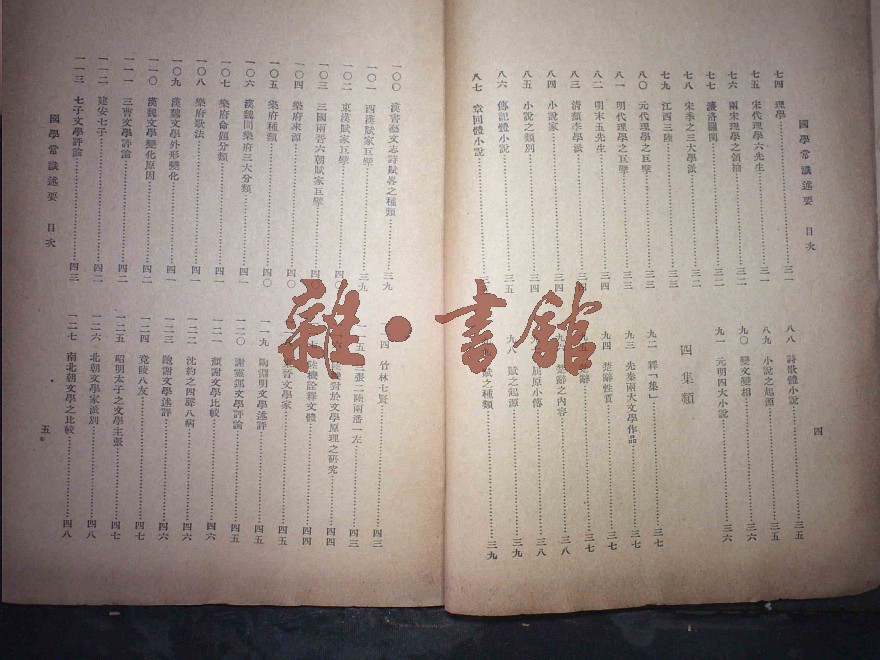 國學常識述要 目次
四
七四 理學 三一
七五 宋代理學六先生 三一
七六 兩宋理學之領袖 三二
七七 濂洛關閩 三二
七八 宋季之三大學派 三三
七九 江西三陸 三三
八〇 元代理學之巨擘 三三
八一 明代理學之巨擘 三三
八二 明末五先生 三四
八三 清顏李學派
八四 小說家 三四
八五 小說之類別 三四
八六 傳記體小說 三五
八七 章回體小說
八八 詩歌體小說 三五
八九 小說之起源 三五
九〇 變文變相 三六
九一 元明四大小說 三六
四 集類
九二 釋「集」 三七
九三 先秦兩大文學作品 三七
九四 楚辭性質 三七
楚辭之內容 三八
屈原小傳 三八
九八 賦之起源 三九
賦之種類 三九
一〇〇 漢書藝文志詩賦畧之種類 三九
一〇一 西漢賦家巨擘 三九
一〇二 東漢賦家巨擘 四〇
一〇三 三國兩晉六朝賦家巨擘 四〇
一〇四 樂府來源 四〇
一〇五 樂府種類 四〇
一〇六 漢魏間樂府三大分類 四一
一〇七 樂府命題分類 四一
一〇八 樂府歌法 四一
一〇九 漢魏文學外形變化 四一
一一〇 漢魏文學變化原因 四二
一一一 三曹文學評論 四二
一一二 建安七子 四二
一一三 七子文學評論 四三
四 竹林七賢 四三
一一五 三張二陸兩潘一左 四三
對於文學原理之研究 四四
陸機詮釋文體 四四
東晉文學家 四五
一一九 陶淵明文學述評 四五
一二〇 謝靈鄆文學評論 四五
一二一 顏謝文學比較 四六
一二二 沈約之四聲八病 四六
一二三 鮑謝文學述評 四六
一二四 竟陵八友 四七
一二五 昭明太子之文學主張 四七
一二六 北朝文學家派別 四八
一二七 南北朝文學之比較 四八
國學常識述要 目次
五
雜·書館